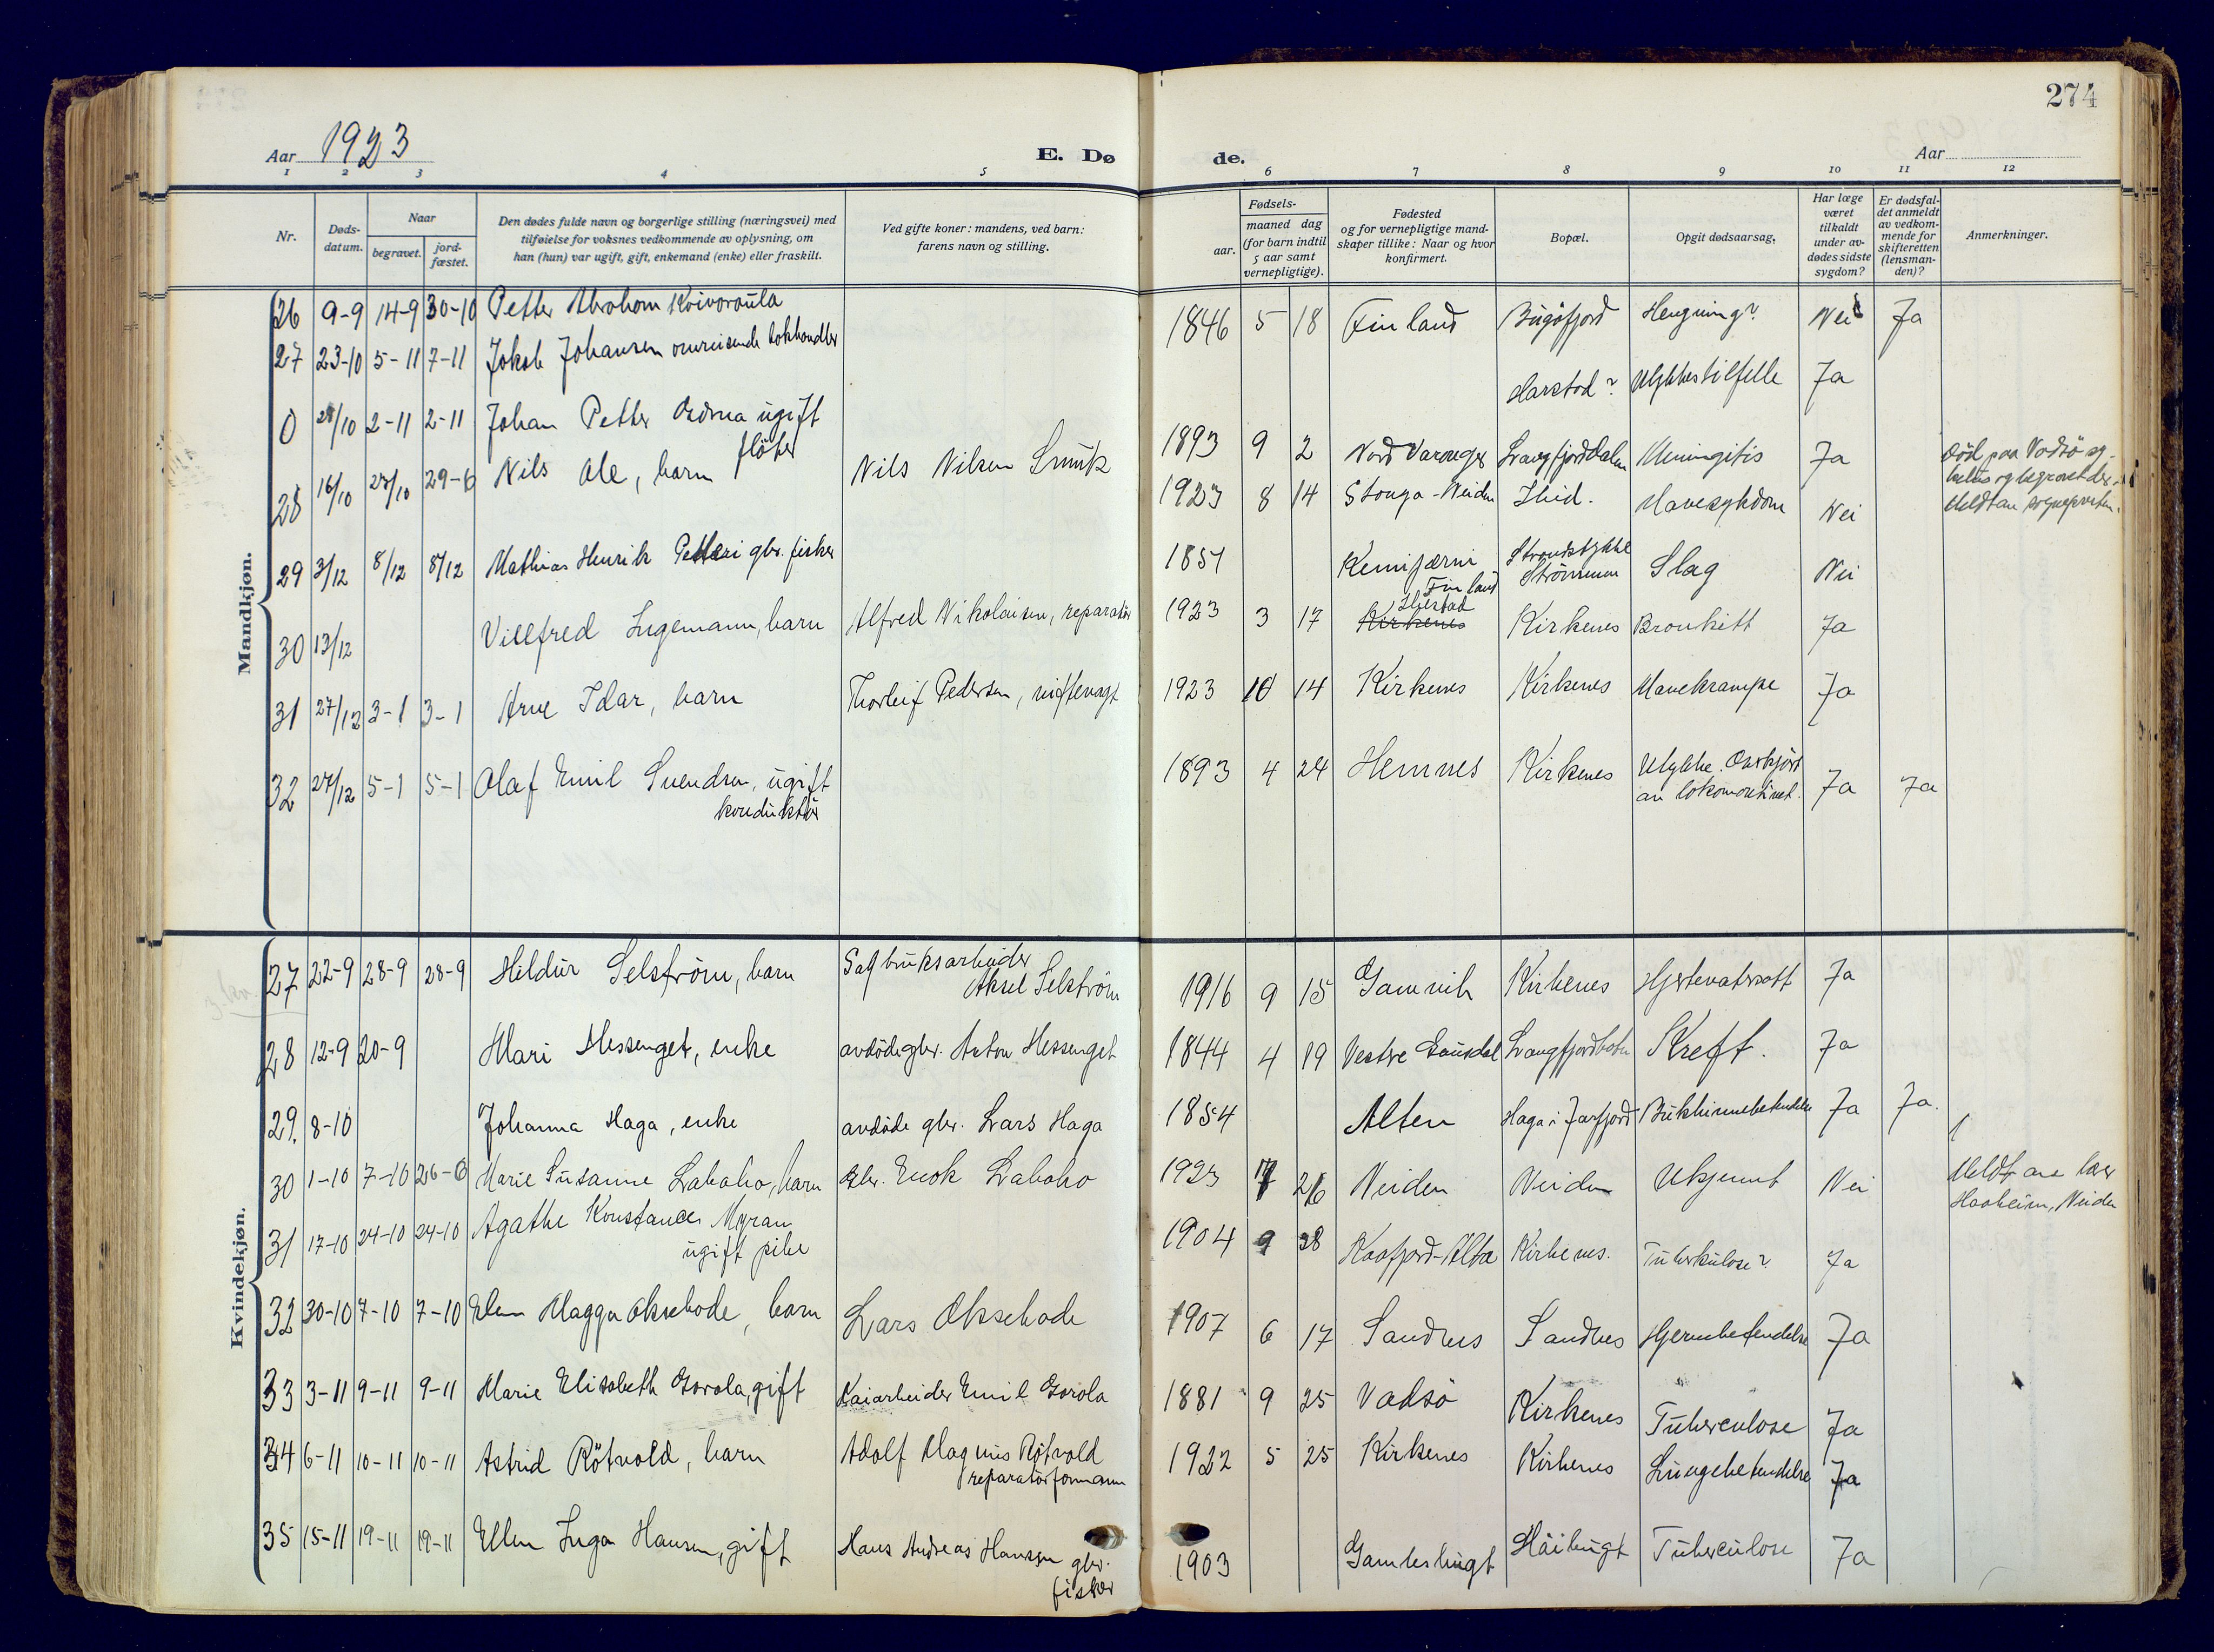 274
Aar 1923
E. Dø
de.
Aar
1 2 3 4 5 6 7 8 9 10 11 12
Nr.
Døds-
datum.
Naar
begravet.
jord-
fæstet.
Den dødes fulde navn og borgerlige stilling (næringsvei) med
tilføielse for voksnes vedkommende av oplysning, om
han (hun) var ugift, gift, enkemand (enke) eller fraskilt.
Ved gifte koner: mandens, ved barn:
farens navn og stilling.
Fødsels-
aar.
maaned dag
(for barn indtil
5 aar samt
vernepligtige).
Fødested
og for vernepligtige mand-
skaper tillike: Naar og hvor
konfirmert.
Bopæl.
Opgit dødsaarsag.
Har læge
været
tilkaldt
under av-
dødes sidste
sygdom?
Er dødsfal-
det anmeldt
av vedkom-
mende for
skifteretten
(lensman-
den)?
Anmerkninger.
Mandkjøn.
26 9-9 14-9 30-10 Petter Abraham 1846 5 18 Finland Bugöfjord Hengning? Nei Ja
27 23-10 5-11 7-11 Jakob Johansen omreisende Harstad? Ulykkestilfelle Ja
0 28/10 2-11 2-11 Johan Petter ugift
fløter 1893 9 2 Nord Varanger Langfjorddalen Meningitis Ja Död paa Vadsö
28 16/10 23/10 29-6 Nils Ole, barn Nils Nilsen Smuk 1923 8 14 Neiden Ibid. Mavesykdom Nei
29 3/12 8/12 8/12 Mathias Henrik Petteri gbr. fisker 1851 Kemijærvi
Finland Strandstykke
Strömmen Slag Nei
30 13/12 Villfred Ingemann, barn Alfred Nikolaisen, reparatör 1923 3 17 Kirkenes Kirkenes Bronkitt Ja
31 27/12 3-1 3-1 Arne Idar, barn Thorleif Pedersen, 1923 10 14 Kirkenes Kirkenes Mavekrampe Ja
32 27/12 5-1 5-1 Olaf Emil Svendsen, ugift
konduktør 1893 4 24 Hemnes Kirkenes Ulykke. Overkjørt
av lokomotivet. Ja Ja
Kvindekjøn.
27 22-9 28-9 28-9 Hildur Selström, barn Sagbruksarbeider
Aksel Selström 1916 9 15 Gamvik Kirkenes Hjertevatersott Ja
28 12-9 20-9 Mari Messenget, enke avdöde gbr. Anton Messenget 1844 4 19 Vestre Gausdal Langfjordbotn Kreft. Ja
29. 8-10 Johanna Haga, enke avdöde gbr. Lars Haga 1854 Alten Haga i Jarfjord Bukhinnebetendelse Ja Ja.
30 1-10 7-10 26-6 Marie Susanne Labaho, barn Gbr. Enok Labaho 1923 26 Neiden Neiden Ukjennt Nei Meldt av
Haaheim, Neiden
31 17-10 24-10 24-10 Agathe Konstance Myran
ugift pike 1904 9 28 Kaafjord-Alta Kirkenes. Tuberkulose? Ja
32 30-10 7-10 7-10 Elen Magga Oksebode, barn Lars Oksebode 1907 6 17 Sandnes Sandnes Hjernebetendelse Ja
33 3-11 9-11 9-11 Marie Elisabeth Gorola, gift Kaiarbeider Emil Gorola 1881 9 25 Vadsö Kirkenes Tuberculose Ja
34 6-11 10-11 10-11 Astrid Rötvold, barn Adolf Magnus Rötvold
reparatørformann 1922 5 25 Kirkenes Kirkenes Lungebetendelse Ja
35 15-11 19-11 19-11 Ellen Inga Hansen, gift Hans Andreas Hansen gbr.
fisker 1903 Gamlesbugt Håibugt Tuberculose Ja